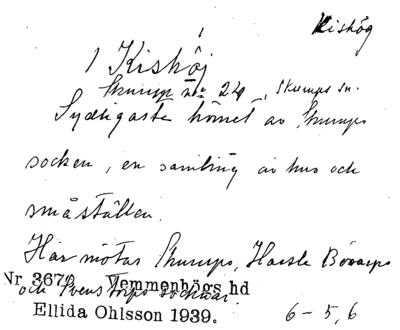 Kishög
1 Kishöj
Skurup no 24, Skurups sn.
Sydligaste hörnet av Skurups
socken, en samling av hus och
småställen.
Här mötas Skurups, Hassle Bösarps
och Svenstorps socknar
Nr 3670 Vemmenhögs hd
Ellida Ohlsson 1939.
6-5,6